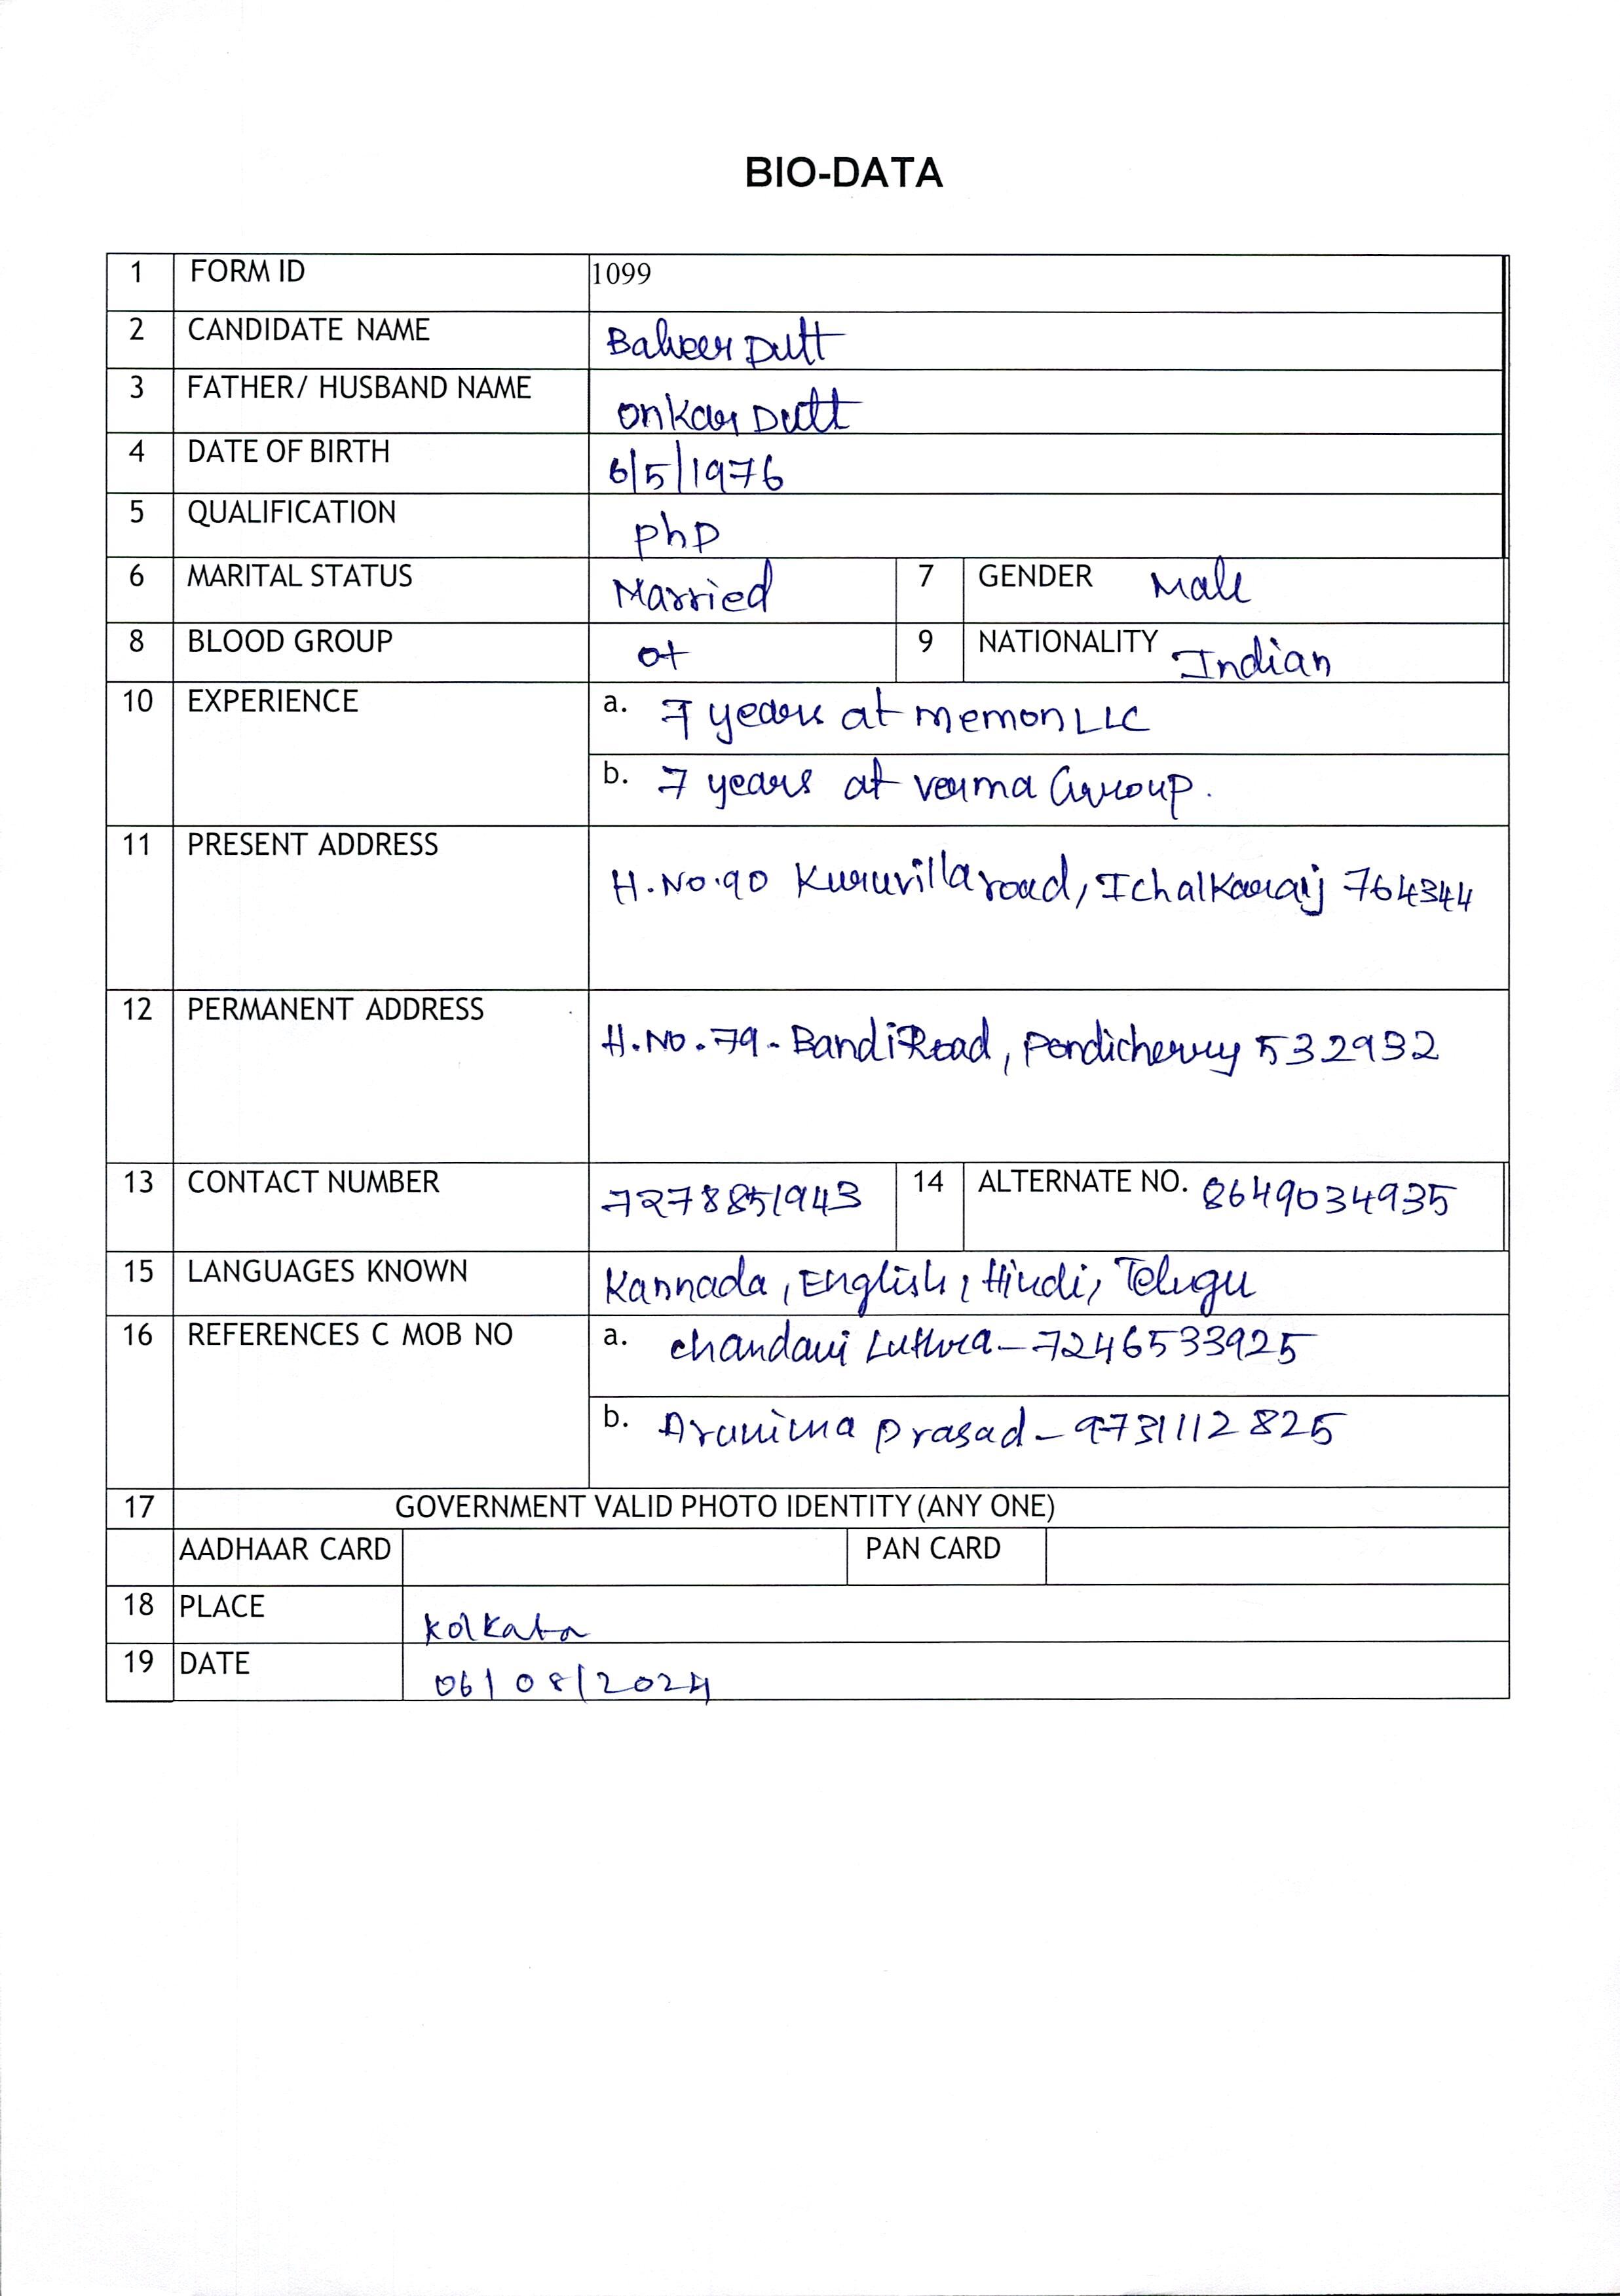 BIO-DATA
1 FORM ID 1099
2 CANDIDATE NAME Balveer Dutt
3 FATHER/ HUSBAND NAME Onkar Dutt
4 DATE OF BIRTH 6/5/1976
5 QUALIFICATION PhD
6 MARITAL STATUS Married 7 GENDER Male
8 BLOOD GROUP O+ 9 NATIONALITY Indian
10 EXPERIENCE a. 7 years at memon LLC
b. 7 years at verma Group.
11 PRESENT ADDRESS H.No.90 Kuruvilla road, Ichalkaraij 764344
12 PERMANENT ADDRESS H.No.79- Bandi Road, Pondicherry 532932
13 CONTACT NUMBER 7278851943 14 ALTERNATE NO. 8649034935
15 LANGUAGES KNOWN Kannada, English, Hindi, Telugu
16 REFERENCES C MOB NO a. Chandani Luthra-7246533925
b. Arunima Prasad-9731112825
17 GOVERNMENT VALID PHOTO IDENTITY (ANY ONE)
AADHAAR CARD PAN CARD
18 PLACE Kolkata
19 DATE 06/08/2024